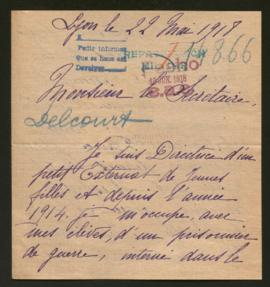 Lyon le 22 Mai 1918
A
Pedir informes
Que se haga así
Devolver
866
Monsieur le Secrétaire,
Delcourt
Je suis Directrice d'un
petit Externat de Jeunes
filles et depuis l'année
1914, je m'occupe, avec
mes élèves, d'un prisonnier
de guerre, interné dans le